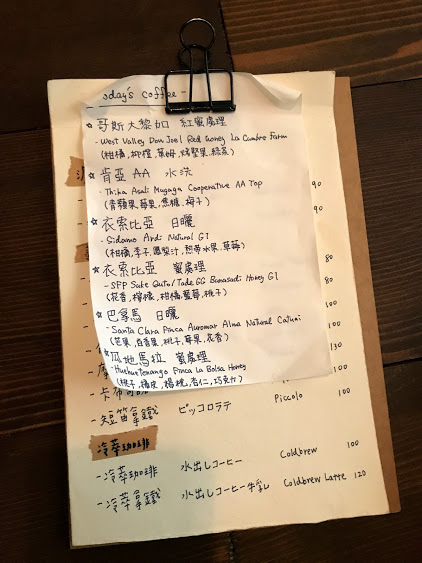 sday's coffee -
☆ 哥斯大黎加 紅蜜處理
- West Valley Don Joel Red Honey La Cumbre Farm
(柑橘, 柳橙, 萊姆, 烤堅果, 綠茶)
☆ 肯亞 AA 水洗
- Thika Asali Mugaga Cooperative AA Top
(青蘋果, 莓果, 焦糖, 梅子)
☆ 衣索比亞 日曬
- Sidamo Ardi Natural G1
(柑橘, 李子, 鳳梨汁, 熱帶水果, 草莓)
☆ 衣索比亞 蜜處理
- SFP Suke Quto/Tade GG Benasadi Honey G1
(花香, 檸檬, 柑橘, 藍莓, 桃子)
☆ 巴拿馬 日曬
- Santa Clara Finca Auromar Alma Natural Catuai
(芒果, 百香果, 桃子, 莓果, 花香)
☆ 瓜地馬拉 蜜處理
- Huehuetenango Finca La Bolsa Honey
(桃子, 橘皮, 楊桃, 杏仁, 巧克力)
90
90
80
80
80
100
100
130
110
- 短笛拿鐵 ピッコロラテ Piccolo 100
冷萃咖啡
- 冷萃咖啡 水出しコーヒー Coldbrew 100
- 冷萃拿鐵 水出しコーヒー牛乳 Coldbrew Latte 120